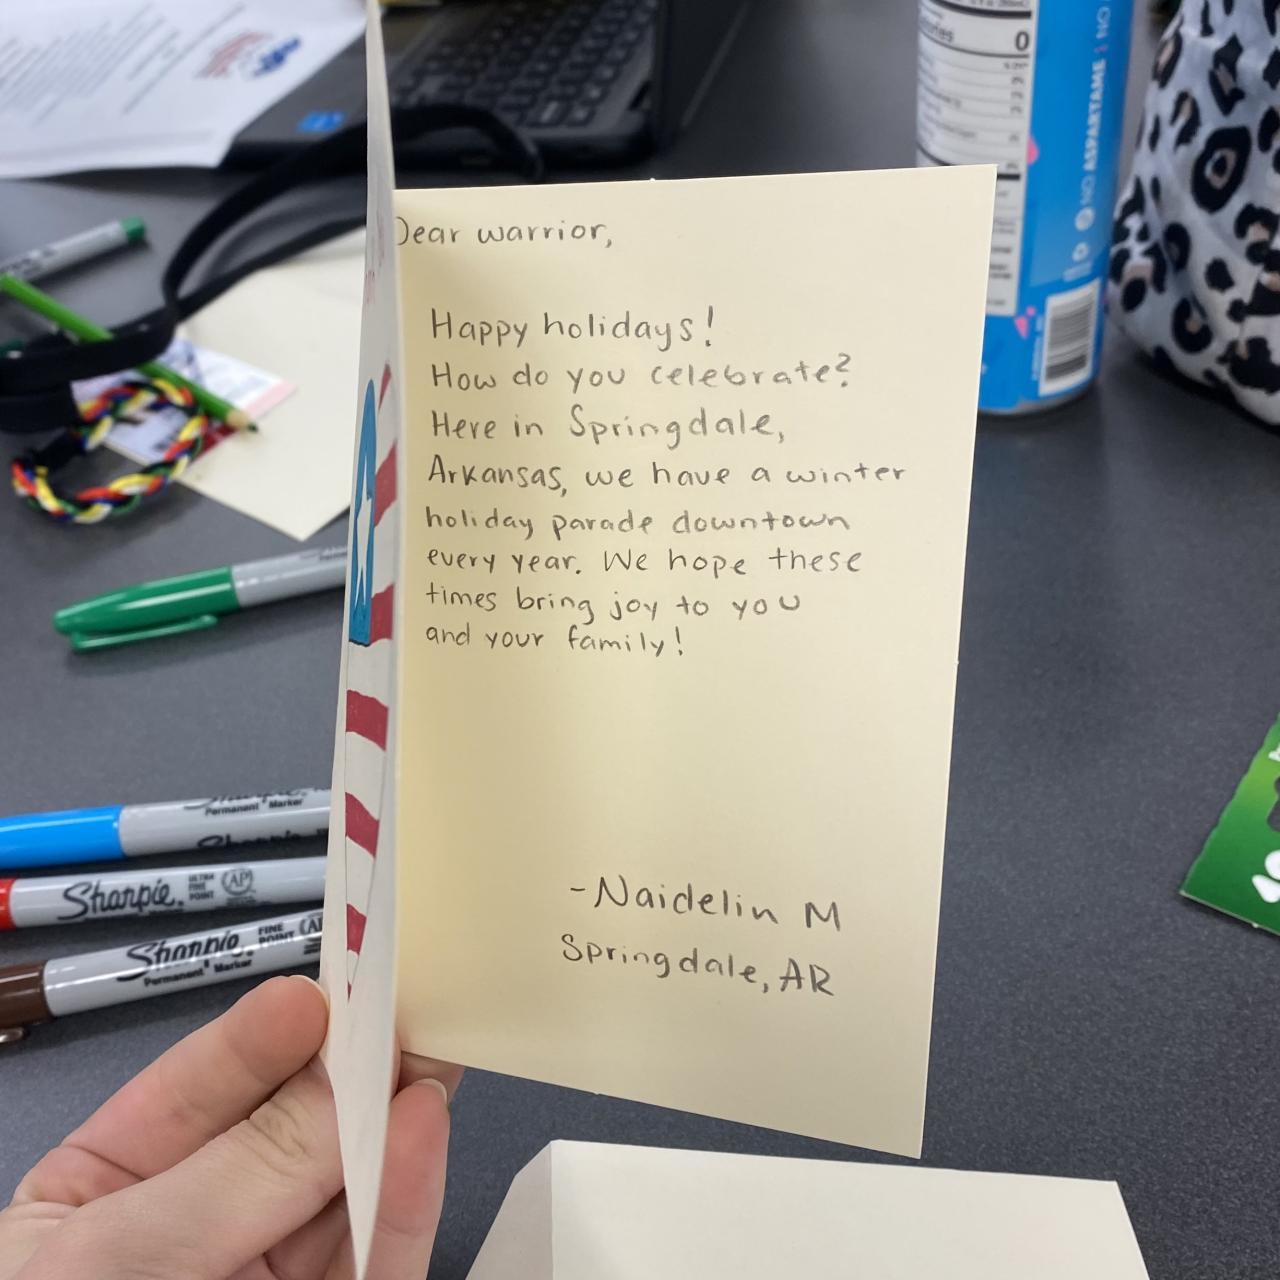 Dear warrior,
Happy holidays!
How do you celebrate?
Here in Springdale,
Arkansas, we have a winter
holiday parade downtown
every year. We hope these
times bring joy to you
and your family!
-Naidelin M
Springdale, AR
0
NO ASPARTAME
NO
Sharpie
Permanent Marker
Sharpie
Sharpie.
ULTRA
FINE
POINT
AP
Sharpie.
FINE
POINT
Permanent Marker